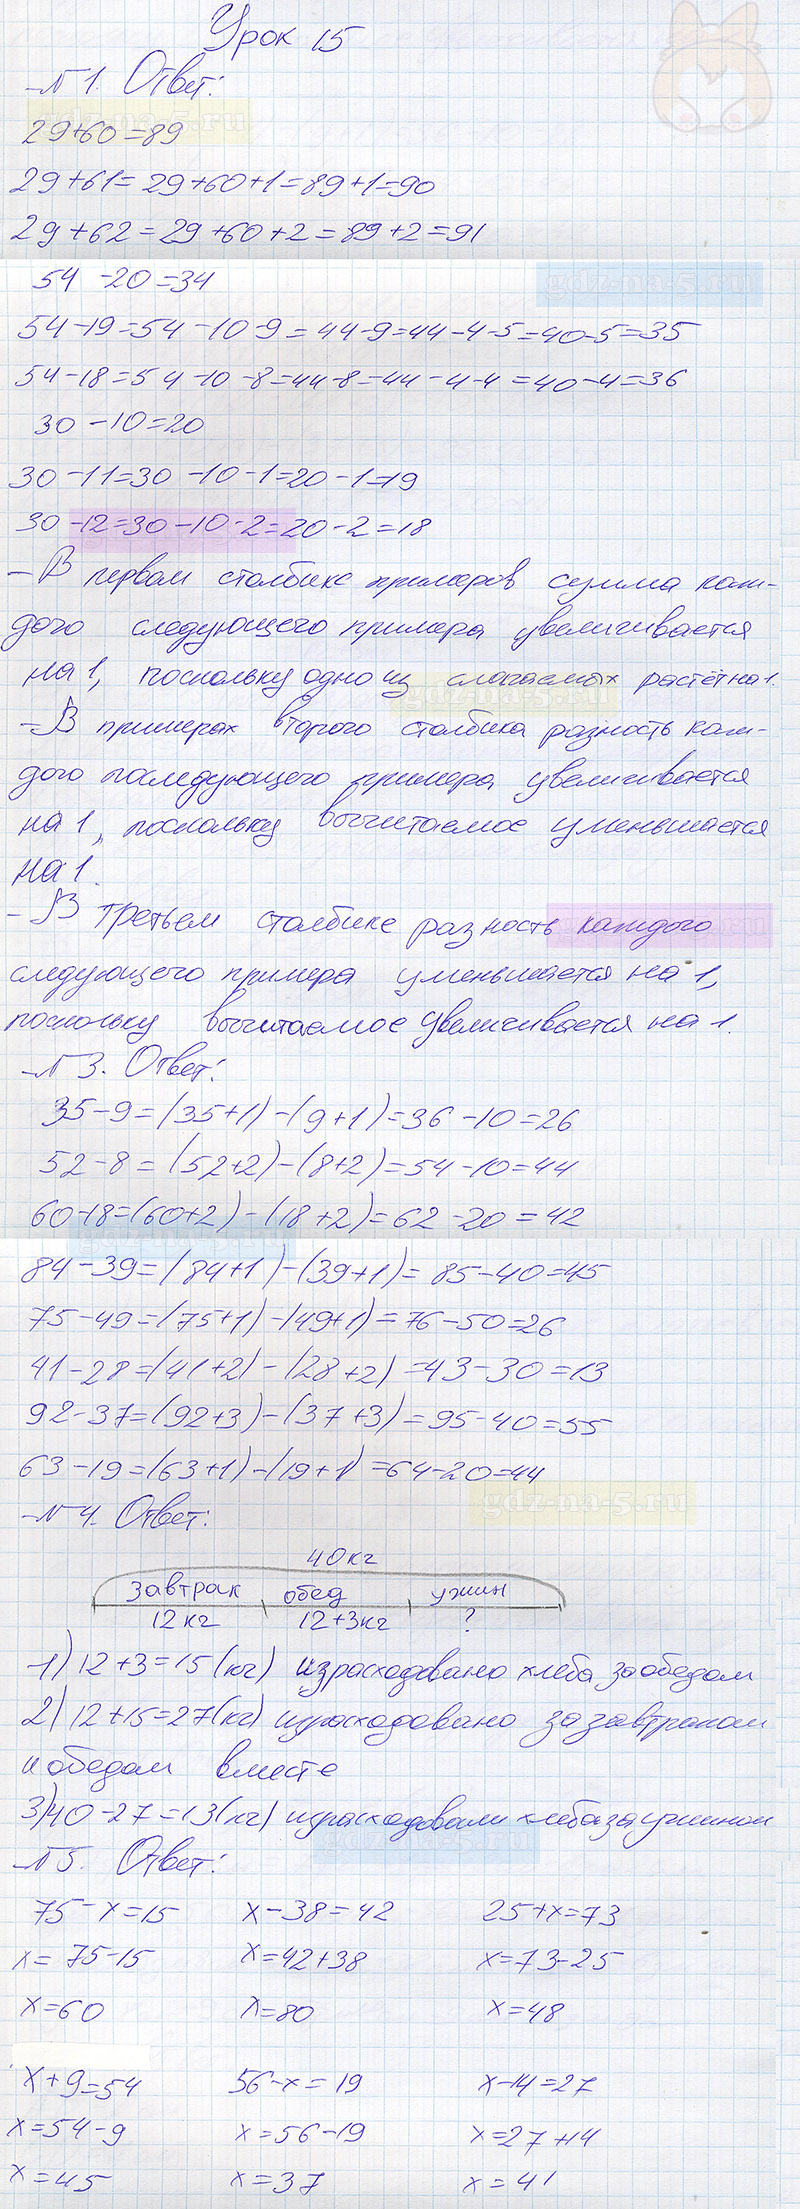 Урок 15
№1. Ответ:
gdz-na-5.ru
29+60=89
29+61=29+60+1=89+1=90
29+62=29+60+2=89+2=91
54-20=34
gdz-na-5.ru
54-19=54-10-9=44-9=44-4-5=40-5=35
54-18=54-10-8=44-8=44-4-4=40-4=36
30-10=20
30-11=30-10-1=20-1=19
30-12=30-10-2=20-2=18
- В первом столбике примеров сумма каж-
дого следующего примера увеличивается
на 1, поскольку одно из слагаемых растёт на 1.
gdz-na-5.ru
- В примерах второго столбика разность каж-
дого последующего примера увеличивается
на 1, поскольку вычитаемое уменьшается
на 1.
- В третьем столбике разность каждого
следующего примера уменьшается на 1,
поскольку вычитаемое увеличивается на 1.
№3. Ответ:
35-9=(35+1)-(9+1)=36-10=26
52-8=(52+2)-(8+2)=54-10=44
60-18=(60+2)-(18+2)=62-20=42
gdz-na-5.ru
84-39=(84+1)-(39+1)=85-40=45
75-49=(75+1)-(49+1)=76-50=26
41-28=(41+2)-(28+2)=43-30=13
92-37=(92+3)-(37+3)=95-40=55
63-19=(63+1)-(19+1)=64-20=44
gdz-na-5.ru
№4. Ответ:
40кг
завтрак обед ужин
12кг 12+3кг ?
1) 12+3=15(кг) израсходовано хлеба за обедом
2) 12+15=27(кг) израсходовано за завтраком
и обедом вместе
3) 40-27=13(кг) израсходовали хлеба за ужином
gdz-na-5.ru
№5. Ответ:
75-x=15 x-38=42 25+x=73
x=75-15 x=42+38 x=73-25
x=60 x=80 x=48
x+9=54 56-x=19 x-14=27
x=54-9 x=56-19 x=27+14
x=45 x=37 x=41